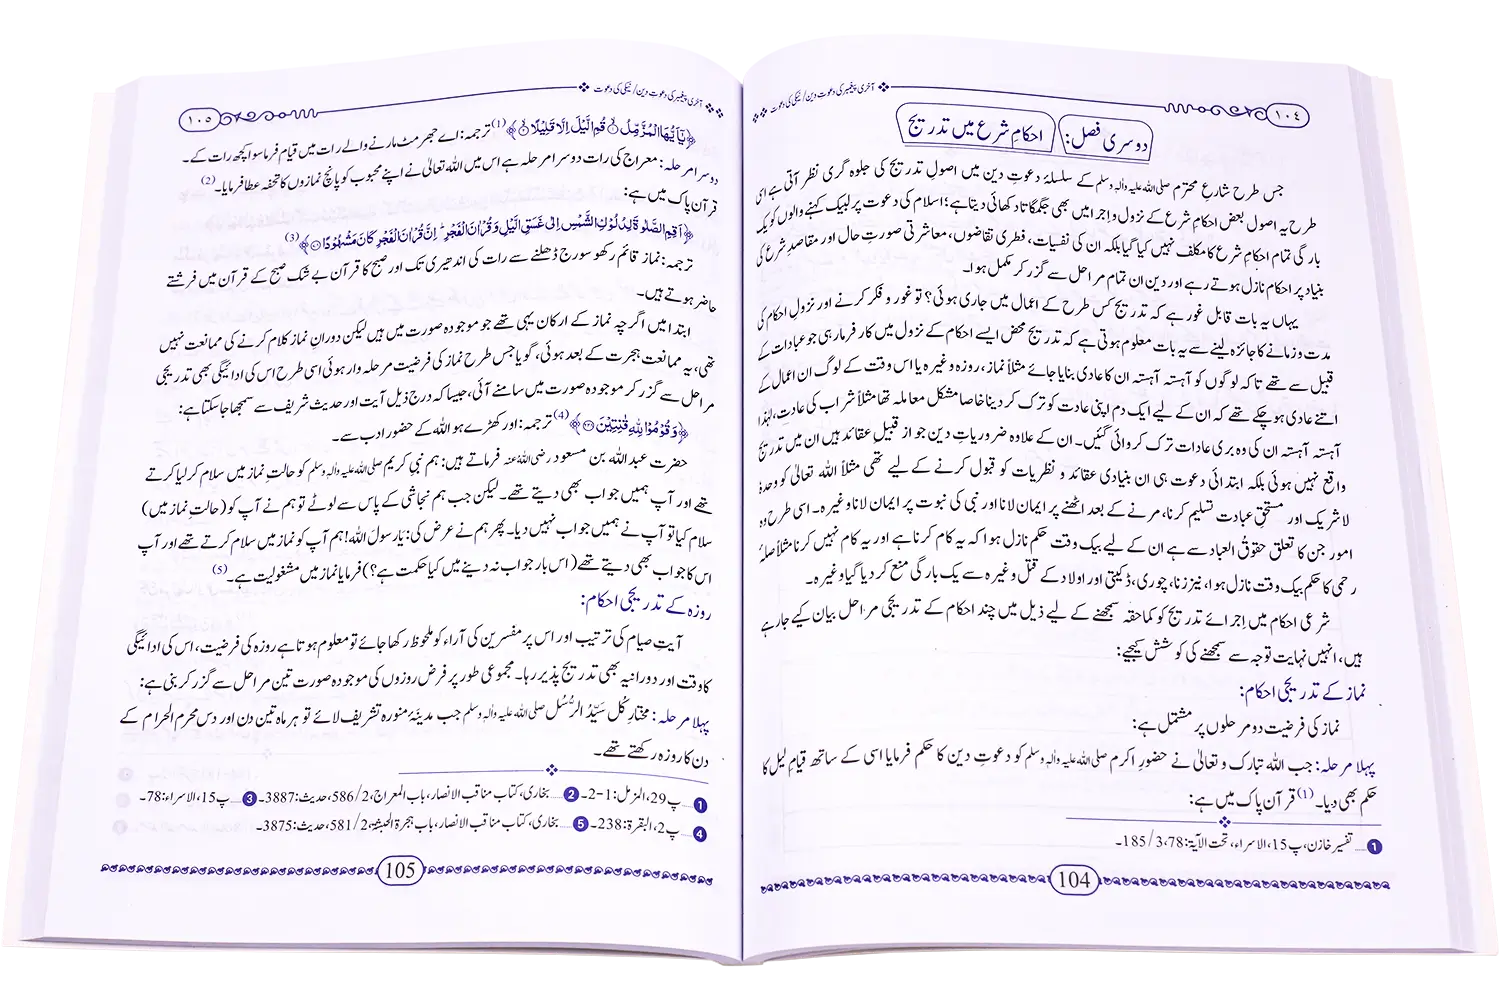 ۱۰٤
آخری پیغمبر کی دعوتِ دین / نیکی کی دعوت
دوسری فصل: احکامِ شرع میں تدریج
جس طرح شارعِ محترم صلی اللہ علیہ واٰلہٖ وسلم کے سلسلۂ دعوتِ دین میں اصولِ تدریج کی جلوہ گری نظر آتی ہے اسی
طرح یہ اصول بعض احکامِ شرع کے نزول و اِجرا میں بھی جگمگاتا دکھائی دیتا ہے؛ اسلام کی دعوت پر لبیک کہنے والوں کو یک
بارگی تمام احکامِ شرع کا مکلف نہیں کیا گیا بلکہ ان کی نفسیات، فطری تقاضوں، معاشرتی صورتِ حال اور مقاصدِ شرع کی
بنیاد پر احکام نازل ہوتے رہے اور دین ان تمام مراحل سے گزر کر مکمل ہوا۔
یہاں یہ بات قابل غور ہے کہ تدریج کس طرح کے اعمال میں جاری ہوئی؟ تو غور و فکر کرنے اور نزولِ احکام کی
مدت و زمانے کا جائزہ لینے سے یہ بات معلوم ہوتی ہے کہ تدریج محض ایسے احکام کے نزول میں کار فرما رہی جو عبادات کے
قبیل سے تھے تاکہ لوگوں کو آہستہ آہستہ ان کا عادی بنایا جائے مثلاً نماز، روزہ وغیرہ یا اس وقت کے لوگ ان اعمال کے
اتنے عادی ہو چکے تھے کہ ان کے لیے ایک دم اپنی عادت کو ترک کر دینا خاصا مشکل معاملہ تھا مثلاً شراب کی عادت، لہٰذا
آہستہ آہستہ ان کی وہ بری عادات ترک کروائی گئیں۔ ان کے علاوہ ضروریاتِ دین جو از قبیل عقائد ہیں ان میں تدریج
واقع نہیں ہوئی بلکہ ابتدائی دعوت ہی ان بنیادی عقائد و نظریات کو قبول کرنے کے لیے تھی مثلاً اللہ تعالیٰ کو وحدہٗ
لاشریک اور مستحقِ عبادت تسلیم کرنا، مرنے کے بعد اٹھنے پر ایمان لانا اور نبی کی نبوت پر ایمان لانا وغیرہ۔ اسی طرح وہ
امور جن کا تعلق حقوقُ العباد سے ہے ان کے لیے بیک وقت حکم نازل ہوا کہ یہ کام کرنا ہے اور یہ کام نہیں کرنا مثلاً صلۂ
رحمی کا حکم بیک وقت نازل ہوا، نیز زنا، چوری، ڈکیتی اور اولاد کے قتل وغیرہ سے یک بارگی منع کر دیا گیا وغیرہ۔
شرعی احکام میں اِجرائے تدریج کو کماحقہ سمجھنے کے لیے ذیل میں چند احکام کے تدریجی مراحل بیان کیے جارہے
ہیں، انہیں نہایت توجہ سے سمجھنے کی کوشش کیجیے:
نماز کے تدریجی احکام:
نماز کی فرضیت دو مرحلوں پر مشتمل ہے:
پہلا مرحلہ: جب اللہ تبارک و تعالیٰ نے حضورِ اکرم صلی اللہ علیہ واٰلہٖ وسلم کو دعوتِ دین کا حکم فرمایا اسی کے ساتھ قیامِ لیل کا
حکم بھی دیا۔(1) قرآنِ پاک میں ہے:
1 ..... تفسیر خازن، پ 15، الاسراء، تحت الآیۃ: 78، 3/ 185۔
104
آخری پیغمبر کی دعوتِ دین / نیکی کی دعوت
۱۰٥
﴿یٰۤاَیُّهَا الْمُزَّمِّلُۙ۝ قُمِ الَّیْلَ اِلَّا قَلِیْلًاۙ۝﴾(1) ترجمہ: اے جھرمٹ مارنے والے رات میں قیام فرما سوا کچھ رات کے۔
دوسرا مرحلہ: معراج کی رات دوسرا مرحلہ ہے اس میں اللہ تعالیٰ نے اپنے محبوب کو پانچ نمازوں کا تحفہ عطا فرمایا۔(2)
قرآنِ پاک میں ہے:
﴿اَقِمِ الصَّلٰوةَ لِدُلُوْكِ الشَّمْسِ اِلٰى غَسَقِ الَّیْلِ وَ قُرْاٰنَ الْفَجْرِؕ اِنَّ قُرْاٰنَ الْفَجْرِ كَانَ مَشْهُوْدًا۝﴾(3)
ترجمہ: نماز قائم رکھو سورج ڈھلنے سے رات کی اندھیری تک اور صبح کا قرآن بے شک صبح کے قرآن میں فرشتے
حاضر ہوتے ہیں۔
ابتدا میں اگرچہ نماز کے ارکان یہی تھے جو موجودہ صورت میں ہیں لیکن دورانِ نماز کلام کرنے کی ممانعت نہیں
تھی، یہ ممانعت ہجرت کے بعد ہوئی، گویا جس طرح نماز کی فرضیت مرحلہ وار ہوئی اسی طرح اس کی ادائیگی بھی تدریجی
مراحل سے گزر کر موجودہ صورت میں سامنے آئی، جیسا کہ درج ذیل آیت اور حدیث شریف سے سمجھا جاسکتا ہے:
﴿وَ قُوْمُوْا لِلّٰهِ قٰنِتِیْنَ۝﴾(4) ترجمہ: اور کھڑے ہو اللہ کے حضور ادب سے۔
حضرت عبد اللہ بن مسعود رضی اللہ عنہ فرماتے ہیں: ہم نبیِ کریم صلی اللہ علیہ واٰلہٖ وسلم کو حالتِ نماز میں سلام کر لیا کرتے
تھے اور آپ ہمیں جواب بھی دیتے تھے۔ لیکن جب ہم نجاشی کے پاس سے لوٹے تو ہم نے آپ کو (حالتِ نماز میں)
سلام کیا تو آپ نے ہمیں جواب نہیں دیا۔ پھر ہم نے عرض کی: یارسولَ اللہ! ہم آپ کو نماز میں سلام کرتے تھے اور آپ
اس کا جواب بھی دیتے تھے (اس بار جواب نہ دینے میں کیا حکمت ہے؟) فرمایا نماز میں مشغولیت ہے۔(5)
روزہ کے تدریجی احکام:
آیتِ صیام کی ترتیب اور اس پر مفسرین کی آراء کو ملحوظ رکھا جائے تو معلوم ہوتا ہے روزہ کی فرضیت، اس کی ادائیگی
کا وقت اور دورانیہ بھی تدریج پذیر رہا۔ مجموعی طور پر فرض روزوں کی موجودہ صورت تین مراحل سے گزر کر بنی ہے:
پہلا مرحلہ: مختارِ کُل سَیِّدُ الرُّسُل صلی اللہ علیہ واٰلہٖ وسلم جب مدینۂ منورہ تشریف لائے تو ہر ماہ تین دن اور دس محرم الحرام کے
دن کا روزہ رکھتے تھے۔
1 ..... پ 29، المزمل: 1-2۔ 2 ..... بخاری، کتاب مناقب الانصار، باب المعراج، 2/586، حدیث: 3887۔ 3 ..... پ 15، الاسراء: 78۔
4 ..... پ 2، البقرۃ: 238۔ 5 ..... بخاری، کتاب مناقب الانصار، باب ہجرۃ الحبشۃ، 2/581، حدیث: 3875۔
105